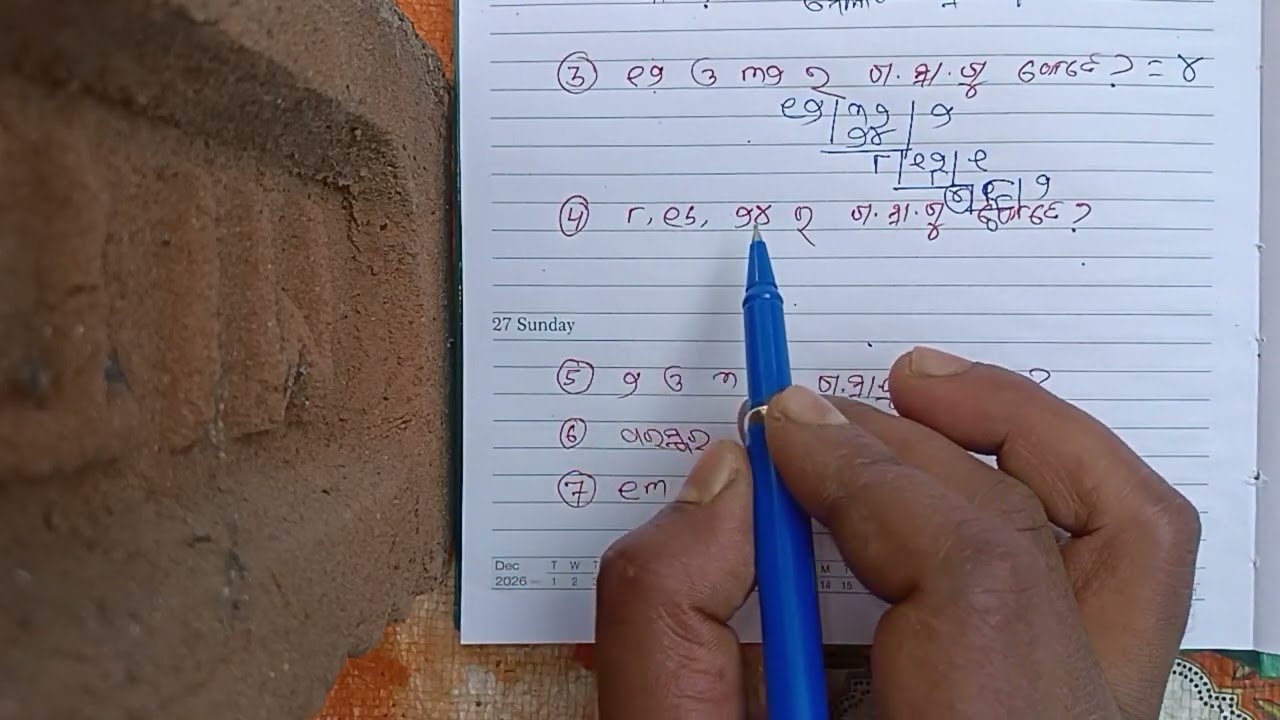 ③ ୧୨ ଓ ୩୨ ର ଗ.ସା.ଗୁ କେତେ? = ୪
୧୨ ୩୨ ୨
୨୪
୮ ୧୨ ୧
୮
୪ ୮ ୨
④ ୮, ୧୬, ୨୪ ର ଗ.ସା.ଗୁ କେତେ?
27 Sunday
⑤ ୨ ଓ ୩ ଗ.ସା. ?
⑥ ପରସ୍ପର
⑦ ୧୩
Dec T W T M T
2026 1 2 14 15